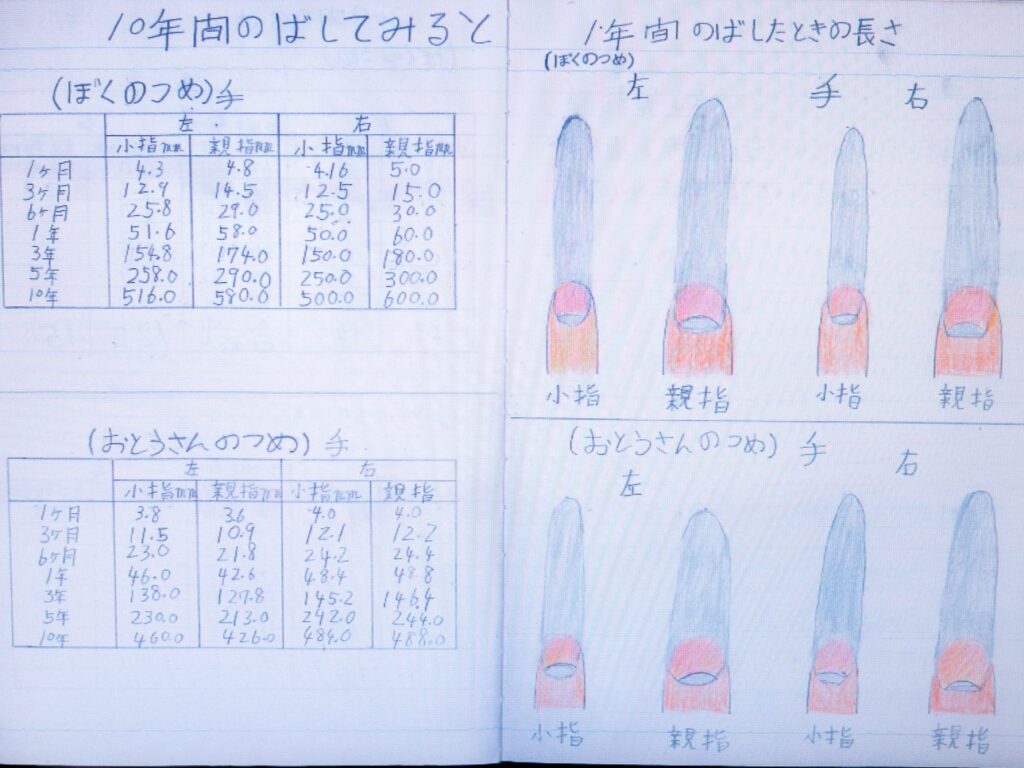 10年間のばしてみると
(ぼくのつめ)手
左 右
小指mm 親指mm 小指mm 親指mm
1ヶ月 4.3 4.8 4.16 5.0
3ヶ月 12.9 14.5 12.5 15.0
6ヶ月 25.8 29.0 25.0 30.0
1年 51.6 58.0 50.0 60.0
3年 154.8 174.0 150.0 180.0
5年 258.0 290.0 250.0 300.0
10年 516.0 580.0 500.0 600.0
(おとうさんのつめ) 手
左 右
小指mm 親指mm 小指mm 親指
1ヶ月 3.8 3.6 4.0 4.0
3ヶ月 11.5 10.9 12.1 12.2
6ヶ月 23.0 21.8 24.2 24.4
1年 46.0 42.6 48.4 48.8
3年 138.0 127.8 145.2 146.4
5年 230.0 213.0 242.0 244.0
10年 460.0 426.0 484.0 488.0
1年間のばしたときの長さ
(ぼくのつめ)
左 手 右
小指 親指 小指 親指
(おとうさんのつめ) 手 右
左
小指 親指 小指 親指